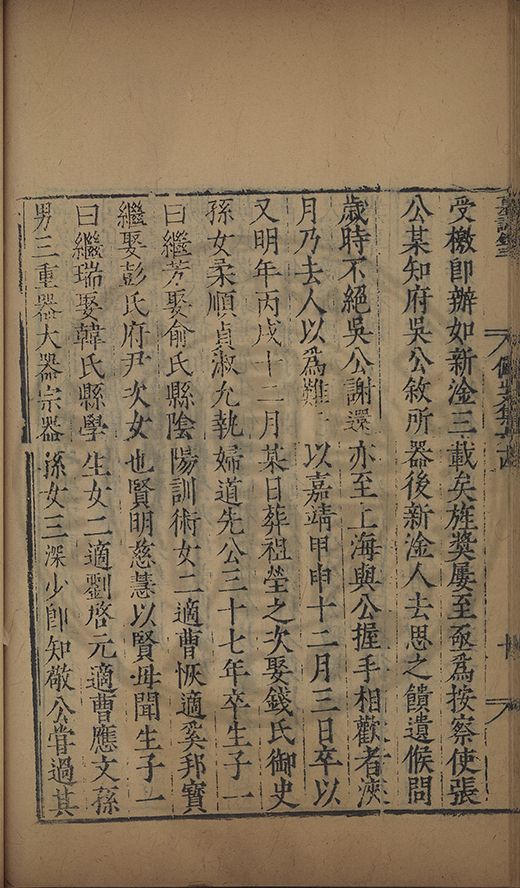 受檄即辦如新淦三載矣旌獎屢至亟爲按察使張
公某知府吳公敘所器後新淦人去思之饋遺候問
歲時不絕吳公謝還亦至上海與公握手相歡者浹
月乃去人以爲難 以嘉靖甲申十二月三日卒以
又明年丙戌十二月某日葬祖塋之次娶錢氏御史
孫女柔順貞淑允執婦道先公三十七年卒生子一
曰繼芳娶俞氏縣陰陽訓術女二適曹恢適奚邦寶
繼娶彭氏府尹次女也賢明慈慧以賢毋聞生子一
曰繼瑞娶韓氏縣學生女二適劉啓元適曹應文孫
男三重器大器宗器孫女三深少即知敬公嘗過其